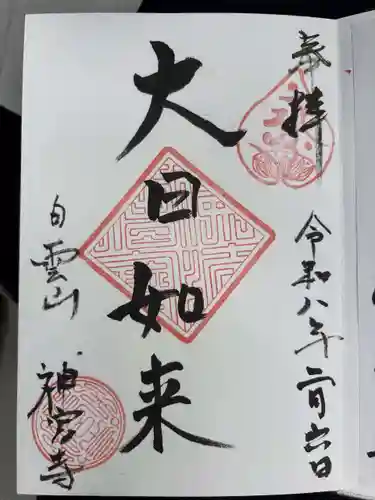 奉拝
令和八年二月六日
大日如来
白雲山
神宮寺